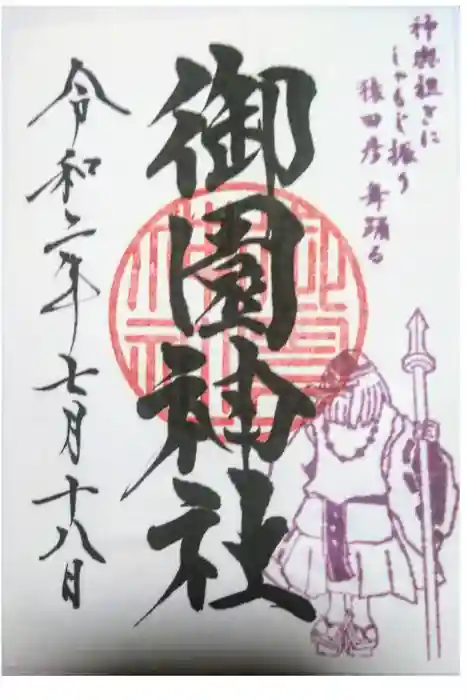 神輿担ぎに
しゃもじ振り
猿田彦 舞踊る
御園神社
令和二年七月十八日